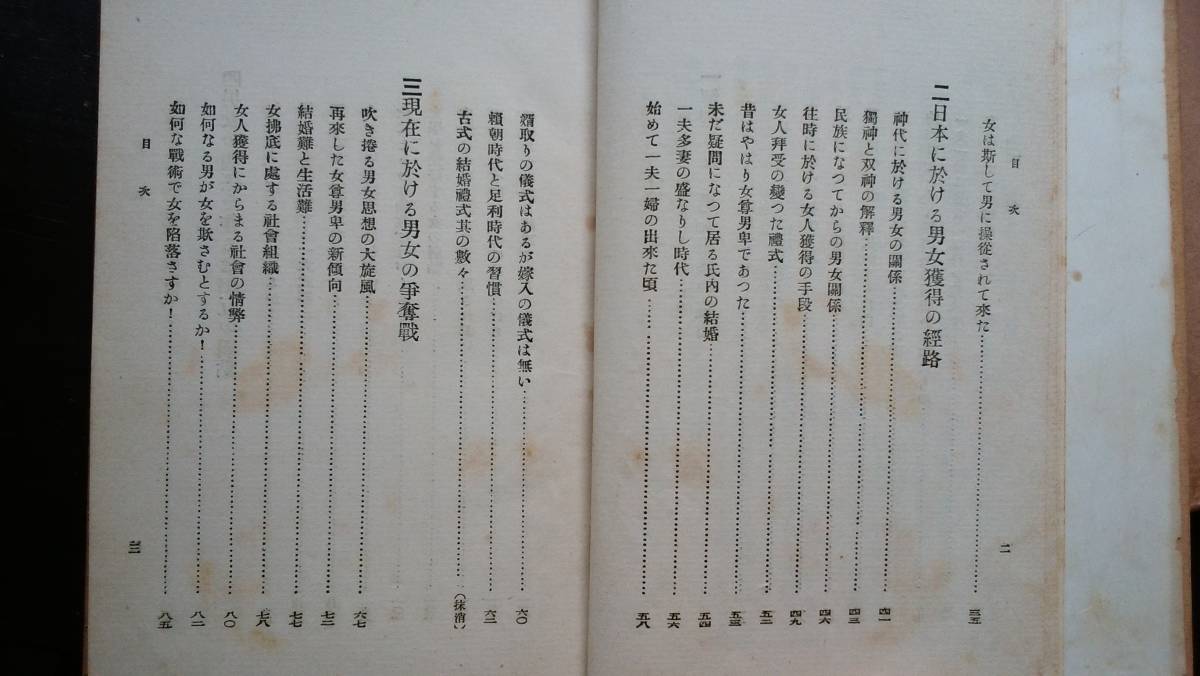 目次
二
女は斯して男に操從されて來た……三五
二 日本に於ける男女獲得の經路
神代に於ける男女の關係……四一
獨神と双神の解釋……四三
民族になつてからの男女關係……四六
往時に於ける女人獲得の手段……四九
女人拜受の變つた禮式……五二
昔はやはり女尊男卑であつた……五三
未だ疑問になつて居る氏内の結婚……五四
一夫多妻の盛なりし時代……五六
始めて一夫一婦の出來た頃……五八
婿取りの儀式はあるが嫁入の儀式は無い……六〇
賴朝時代と足利時代の習慣……六二
古式の結婚禮式其の數々……(抹消)
三 現在に於ける男女の爭奪戰
吹き捲る男女思想の大旋風……六七
再來した女尊男卑の新傾向……七二
結婚難と生活難……七七
女拂底に處する社會組織……七八
女人獲得にからまる社會の情弊……八〇
如何なる男が女を欺さむとするか!……八二
如何な戰術で女を陷落さすか!……八五
目次
三